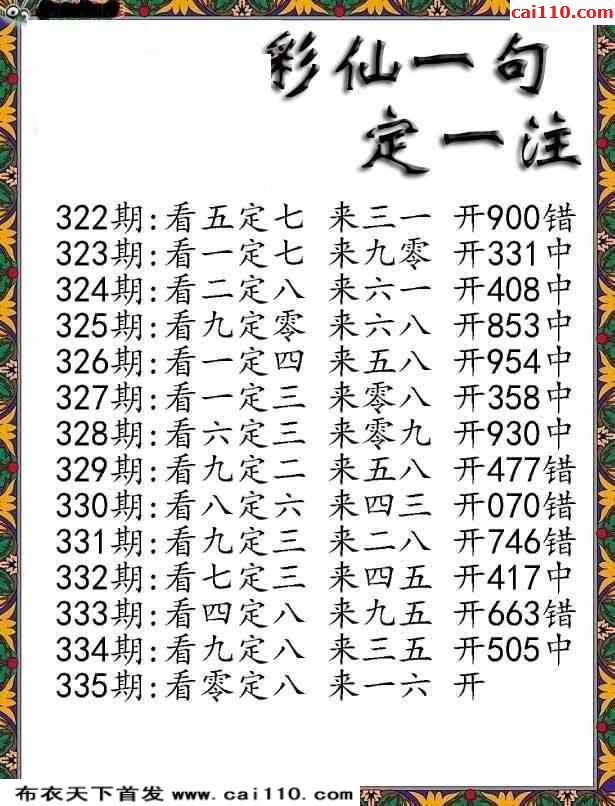 cai110.com
彩仙一句
定一注
322期:看五定七 来三一 开900错
323期:看一定七 来九零 开331中
324期:看二定八 来六一 开408中
325期:看九定零 来六八 开853中
326期:看一定四 来五八 开954中
327期:看一定三 来零八 开358中
328期:看六定三 来零九 开930中
329期:看九定二 来五八 开477错
330期:看八定六 来四三 开070错
331期:看九定三 来二八 开746错
332期:看七定三 来四五 开417中
333期:看四定八 来九五 开663错
334期:看九定八 来三五 开505中
335期:看零定八 来一六 开
布衣天下首发 www.cai110.com